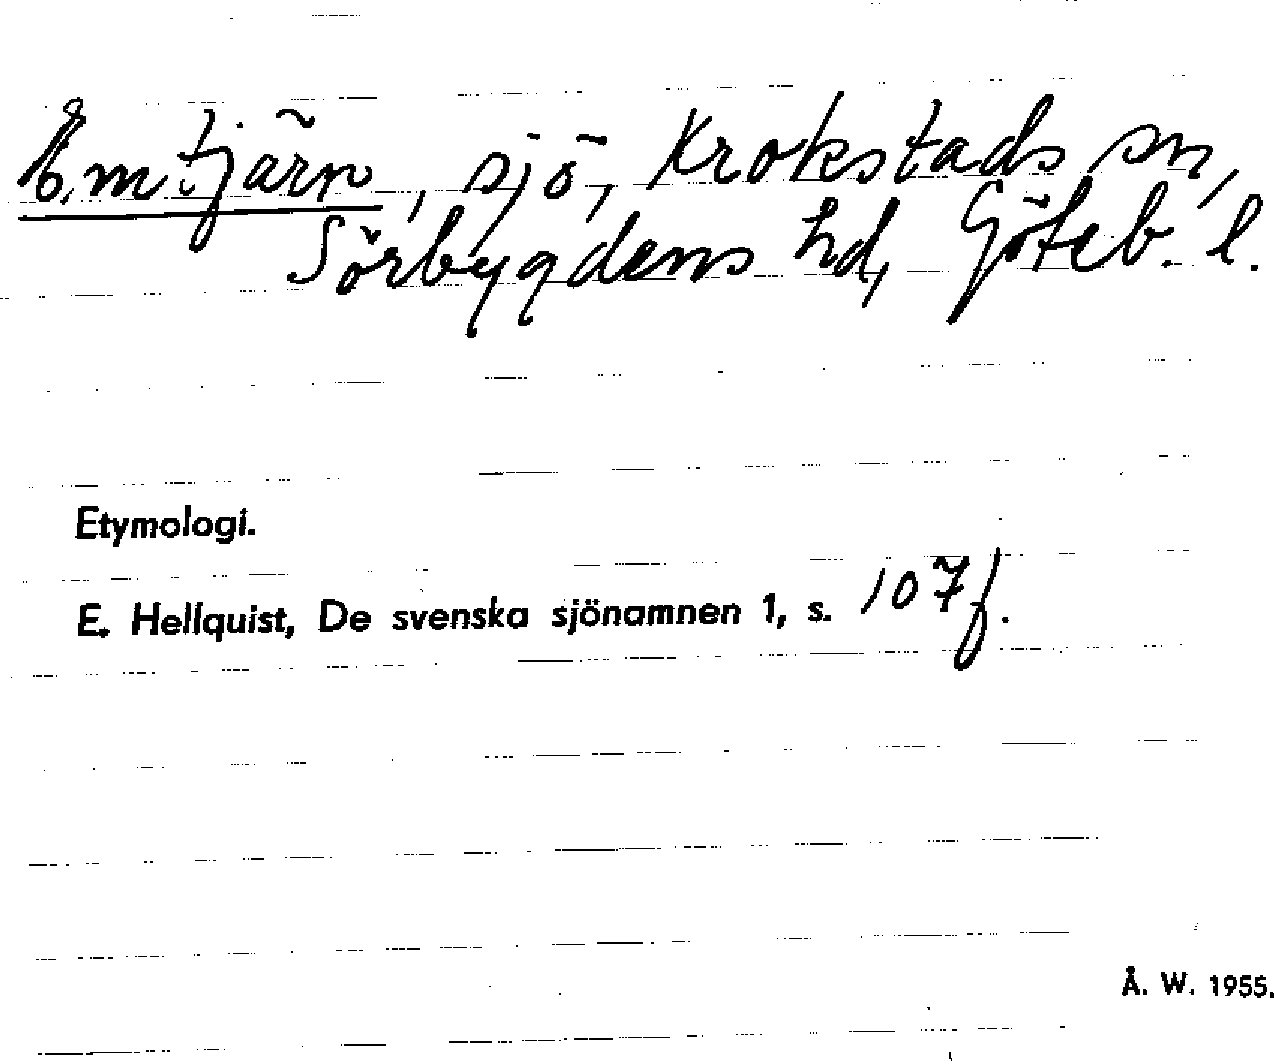 Emtjärn, sjö, Krokstads sn,
Sörbygdens hd, Göteb. l.
Etymologi.
E. Hellquist, De svenska sjönamnen 1, s. 107 f.
Å. W. 1955.